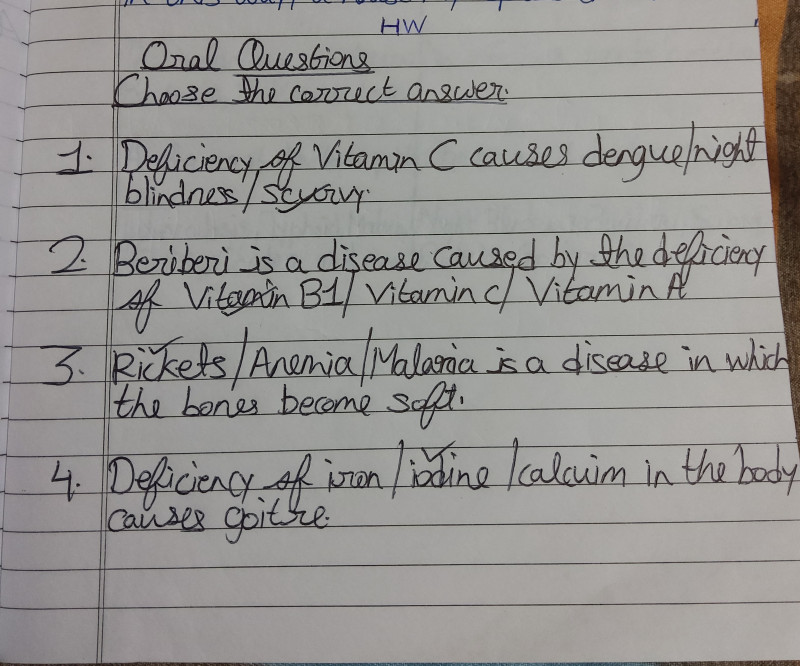 HW
Oral Questions
Choose the correct answer.
1. Deficiency of Vitamin C causes dengue/night
blindness/scurvy.
2. Beriberi is a disease caused by the deficiency
of Vitamin B1/ Vitamin c/ Vitamin A
3. Rickets/Anemia/Malaria is a disease in which
the bones become soft.
4. Deficiency of iron/iodine/calcuim in the body
causes goitre.